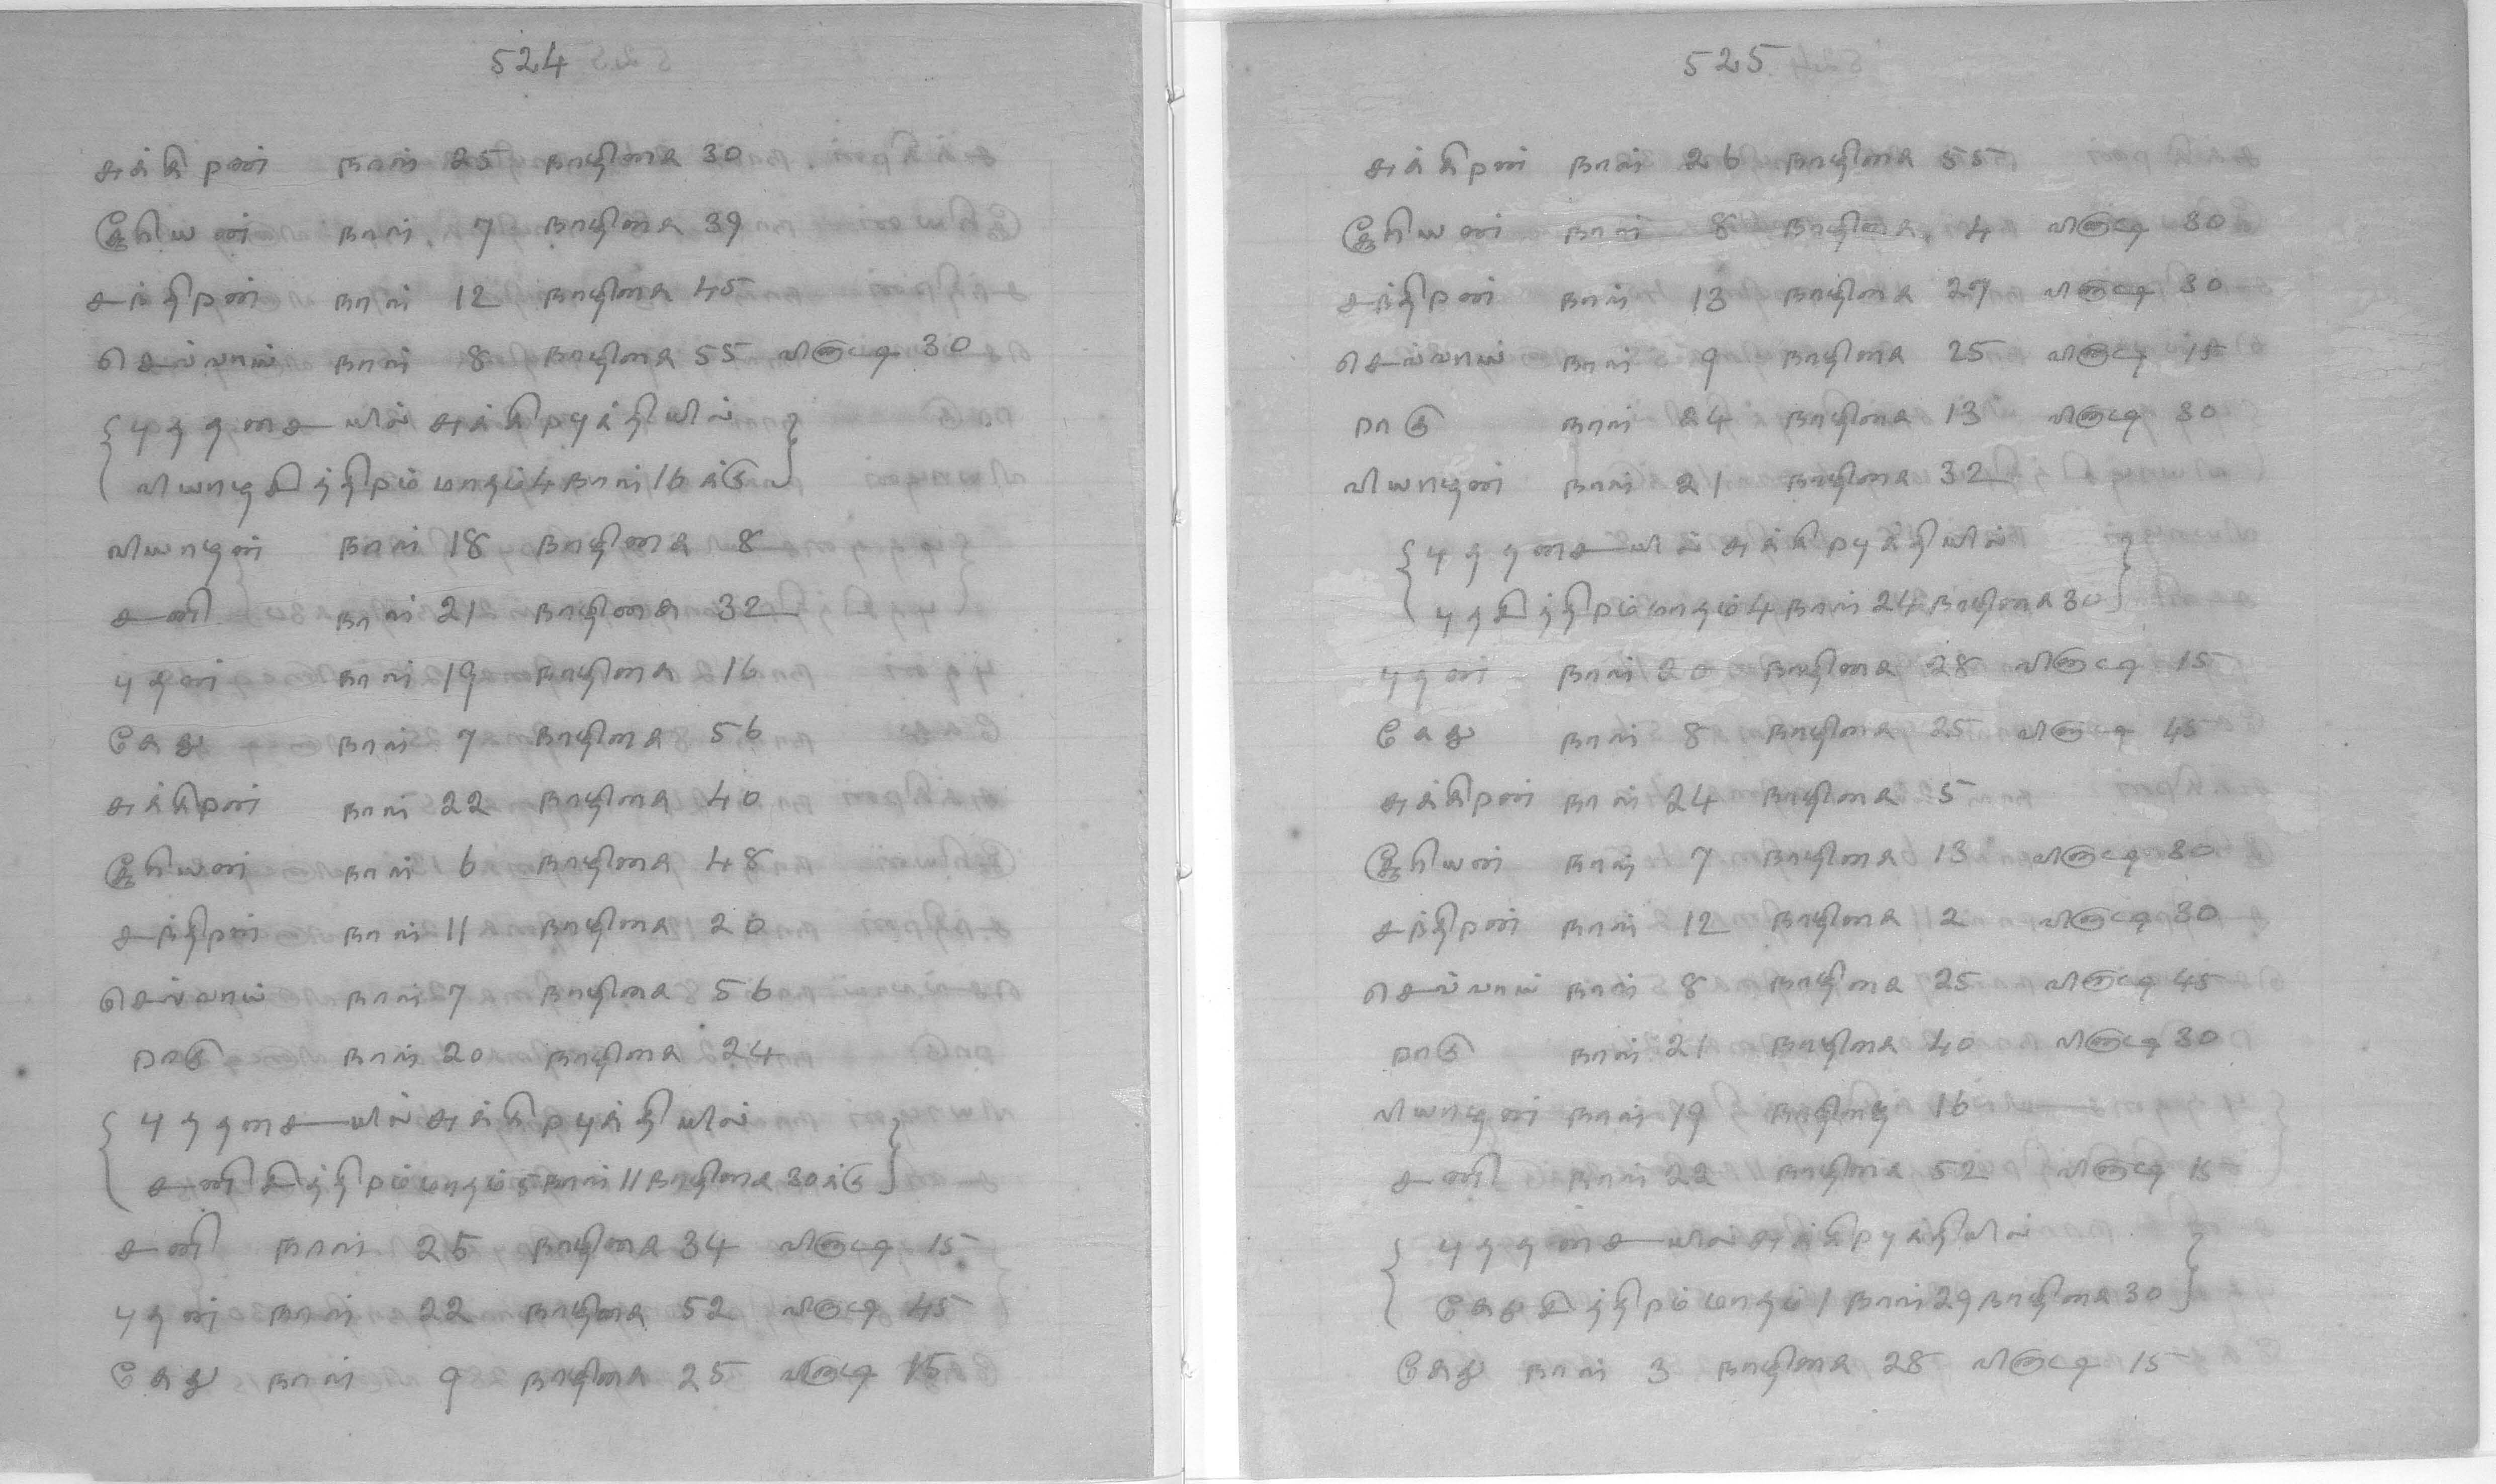 524
சுக்கிரன் நாள் 25 நாழிகை 30
சூரியன் நாள் 7 நாழிகை 39
சந்திரன் நாள் 12 நாழிகை 45
செவ்வாய் நாள் 8 நாழிகை 55 விநாடி 30
{புததசையில் சுக்கிரபுக்தியில்
வியாழசித்திரம் மாதம் 4 நாள் 16 க்கு}
வியாழன் நாள் 18 நாழிகை 8
சனி நாள் 21 நாழிகை 32
புதன் நாள் 19 நாழிகை 16
கேது நாள் 7 நாழிகை 56
சுக்கிரன் நாள் 22 நாழிகை 40
சூரியன் நாள் 6 நாழிகை 48
சந்திரன் நாள் 11 நாழிகை 20
செவ்வாய் நாள் 7 நாழிகை 56
ராகு நாள் 20 நாழிகை 24
{புததசையில் சுக்கிரபுக்தியில்
சனிசித்திரம் மாதம் 5 நாள் 11 நாழிகை 30 க்கு}
சனி நாள் 25 நாழிகை 34 விநாடி 15
புதன் நாள் 22 நாழிகை 52 விநாடி 45
கேது நாள் 9 நாழிகை 25 விநாடி 15
525
சுக்கிரன் நாள் 26 நாழிகை 55
சூரியன் நாள் 8 நாழிகை 4 விநாடி 30
சந்திரன் நாள் 13 நாழிகை 27 விநாடி 30
செவ்வாய் நாள் 9 நாழிகை 25 விநாடி 15
ராகு நாள் 24 நாழிகை 13 விநாடி 30
வியாழன் நாள் 21 நாழிகை 32
{புததசையில் சுக்கிரபுக்தியில்
புதசித்திரம் மாதம் 4 நாள் 24 நாழிகை 30}
புதன் நாள் 20 நாழிகை 28 விநாடி 15
கேது நாள் 8 நாழிகை 25 விநாடி 45
சுக்கிரன் நாள் 24 நாழிகை 5
சூரியன் நாள் 7 நாழிகை 13 விநாடி 30
சந்திரன் நாள் 12 நாழிகை 2 விநாடி 30
செவ்வாய் நாள் 8 நாழிகை 25 விநாடி 45
ராகு நாள் 21 நாழிகை 40 விநாடி 30
வியாழன் நாள் 19 நாழிகை 16
சனி நாள் 22 நாழிகை 52 விநாடி 15
{புததசையில் சுக்கிரபுக்தியில்
கேதுசித்திரம் மாதம் 1 நாள் 29 நாழிகை 30}
கேது நாள் 3 நாழிகை 28 விநாடி 15